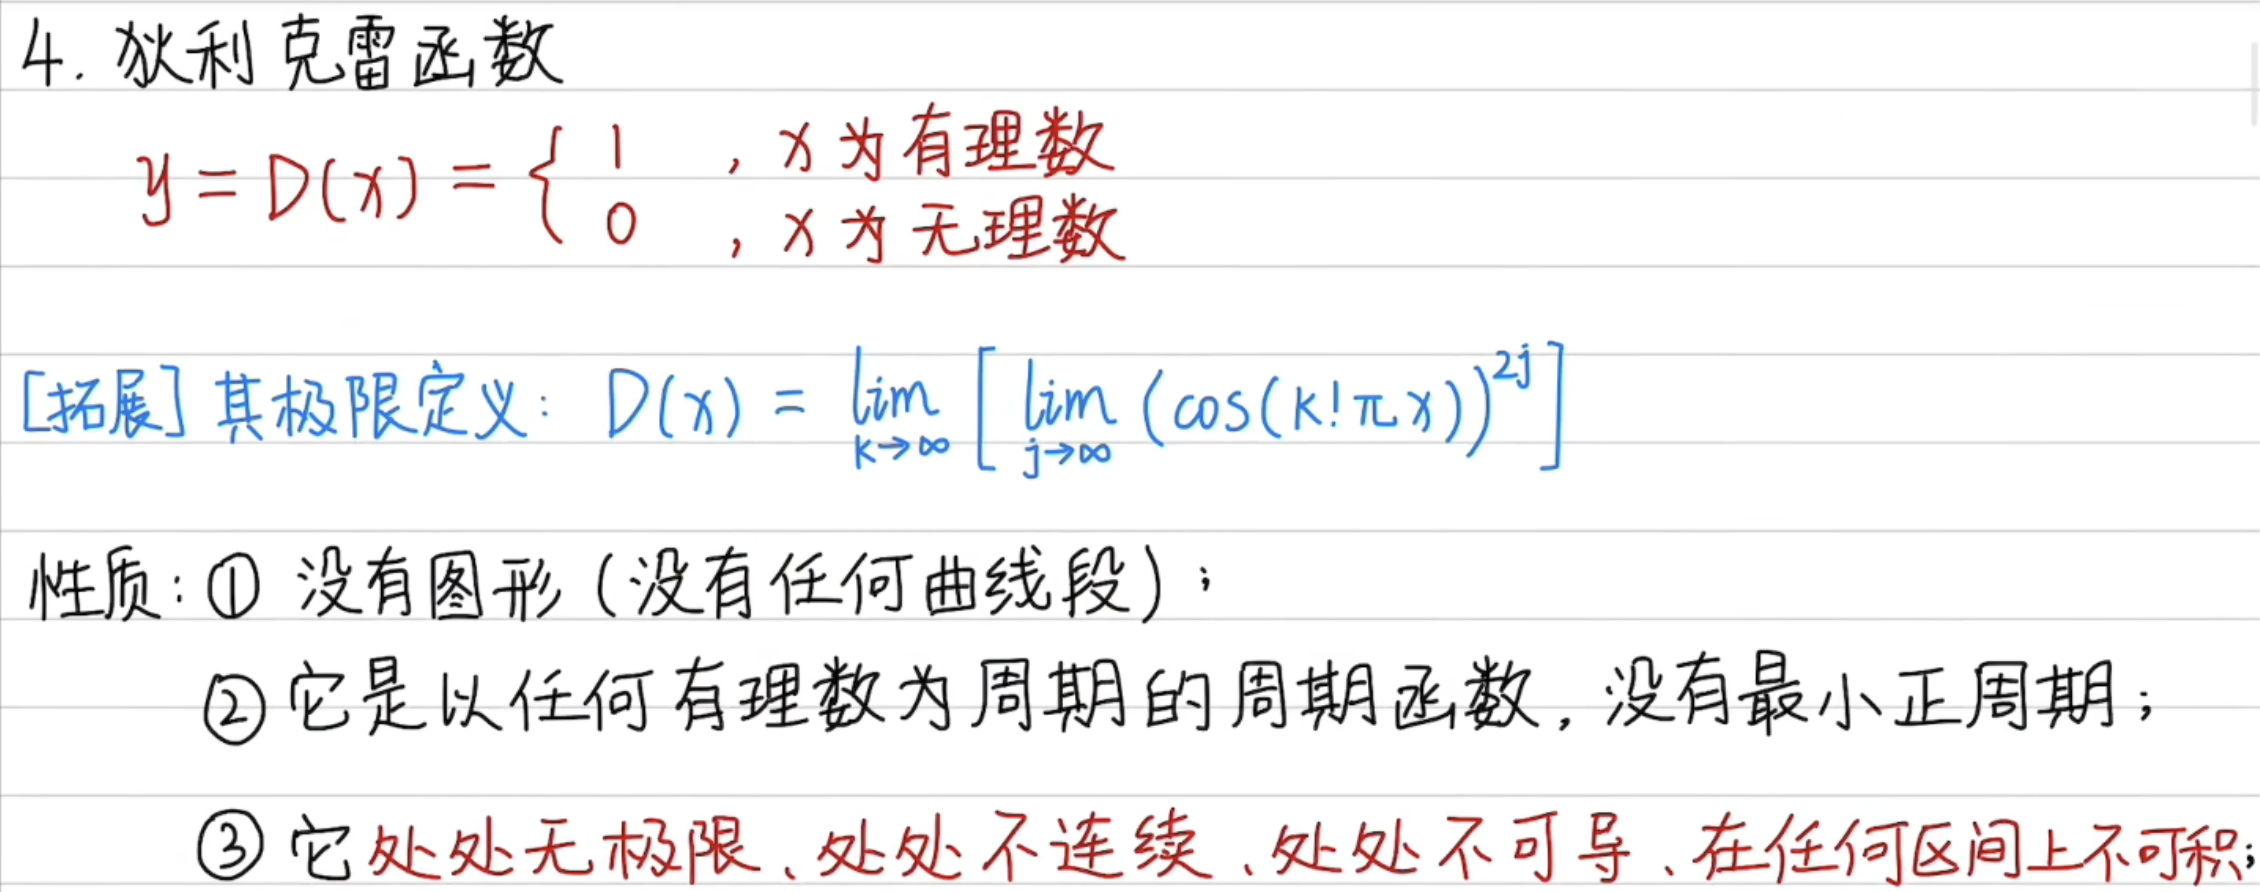 4. 狄利克雷函数
y = D(x) = { 1 , x 为有理数
0 , x 为无理数
[拓展] 其极限定义: D(x) = lim k→∞ [ lim j→∞ (cos(k!πx))^2j ]
性质: ① 没有图形 (没有任何曲线段) ;
② 它是以任何有理数为周期的周期函数, 没有最小正周期;
③ 它处处无极限、处处不连续、处处不可导、在任何区间上不可积;